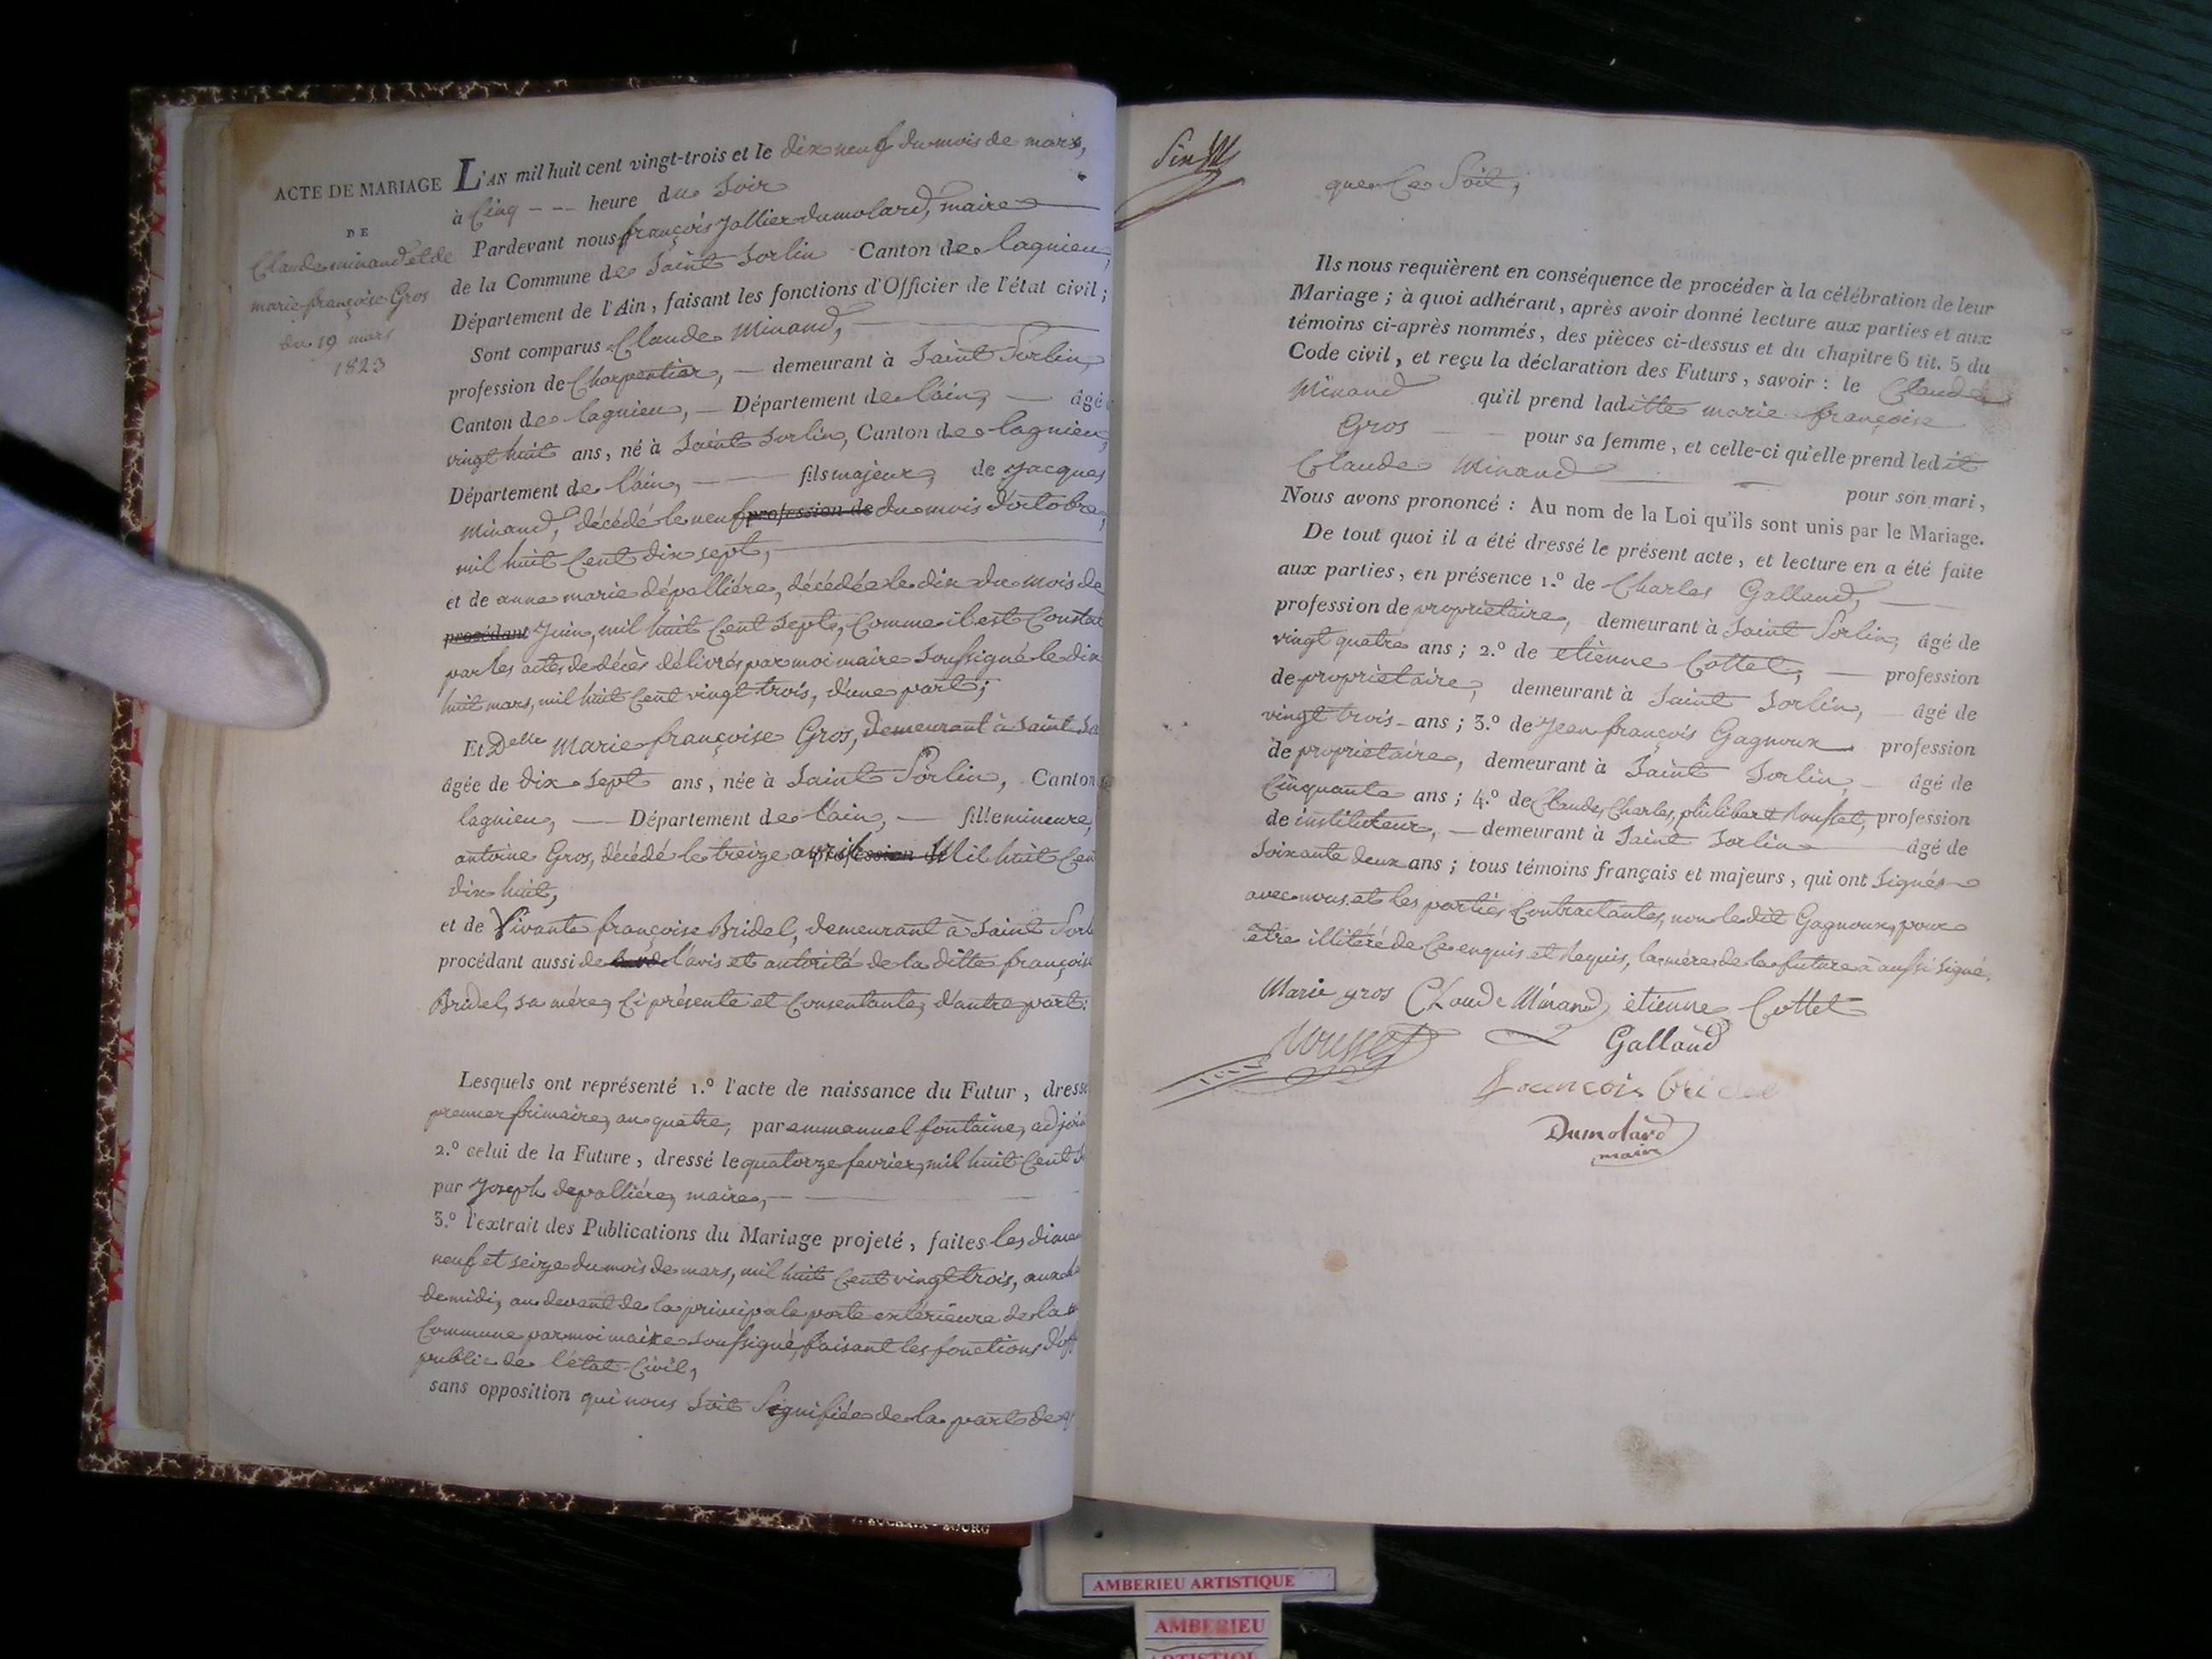 ACTE DE MARIAGE
DE
Claude minand et de
marie françoise Gros
du 19 mars
1823
L'AN mil huit cent vingt-trois et le dix neuf du mois de mars,
à Cinq --- heure du Soir
Pardevant nous françois Jollier dumolard, maire
de la Commune de Saint Sorlin Canton de lagnieu,
Département de l'Ain, faisant les fonctions d'Officier de l'état civil;
Sont comparus Claude Minand,
profession de Charpentier, — demeurant à Saint Sorlin,
Canton de lagnieu, — Département de l'ain, — âgé
vingt huit ans, né à Saint Sorlin, Canton de lagnieu,
Département de l'ain, — fils majeur, de Jacques
Minand, décédé le neuf profession de du mois d'octobre,
mil huit Cent dix sept,
et de anne marie dépalliére, décédée le dix du mois de
procédant Juin, mil huit Cent Sept, Comme il est Constat
par les actes de décès délivrés par moi maire Soussigné le dix
huit mars, mil huit Cent vingt trois, d'une part;
Et Delle Marie françoise Gros, demeurant à Saint So
âgée de dix Sept ans, née à Saint Sorlin, Canton
lagnieu, — Département de l'ain, — fille mineure,
antoine Gros, décédé le treize avril profession de Mil huit Cen
dix huit,
et de Vivante françoise Bridel, demeurant à Saint Sorl
procédant aussi de l'avis et autorité de la ditte françoise
Bridel, sa mére, Ci présente et Consentante, d'autre part:
Lesquels ont représenté 1.º l'acte de naissance du Futur, dressé
premier frimaire, an quatre, par emmanuel fontaine, adjoin
2.º celui de la Future, dressé le quatorze fevrier, mil huit Cent
par Joseph depalliére, maire,
3.º l'extrait des Publications du Mariage projeté, faites les diman
neuf et seize du mois de mars, mil huit Cent vingt trois,
de midi, au devant de la principale porte extérieure de la
Commune par moi maire Soussigné, faisant les fonctions d'off
public de l'état Civil,
sans opposition qui nous Soit Signifiée de la part de
que Ce Soit;
Ils nous requièrent en conséquence de procéder à la célébration de leur
Mariage; à quoi adhérant, après avoir donné lecture aux parties et aux
témoins ci-après nommés, des pièces ci-dessus et du chapitre 6 tit. 5 du
Code civil, et reçu la déclaration des Futurs, savoir: le Claude
Minand qu'il prend laditte marie françoise
Gros — pour sa femme, et celle-ci qu'elle prend ledit
Claude Minand pour son mari,
Nous avons prononcé: Au nom de la Loi qu'ils sont unis par le Mariage.
De tout quoi il a été dressé le présent acte, et lecture en a été faite
aux parties, en présence 1.º de Charles Galland,
profession de propriétaire, demeurant à Saint Sorlin, âgé de
vingt quatre ans; 2.º de etienne Cottet, — profession
de propriétaire, demeurant à Saint Sorlin, âgé de
vingt trois ans; 3.º de Jean françois Gagnoux profession
de propriétaire, demeurant à Saint Sorlin, — âgé de
Cinquante ans; 4.º de Claude, Charles, philibert Rousset, profession
de instituteur, — demeurant à Saint Sorlin âgé de
Soixante deux ans; tous témoins français et majeurs, qui ont Signés
avec nous et les parties Contractantes, non le dit Gagnoux, pour
être illitéré de Ce enquis et Requis, la mére de la future à aussi Signé.
Marie gros Claude Minand etienne Cottet
Rousset Galland
Dumolard
maire
AMBERIEU ARTISTIQUE
AMBERIEU